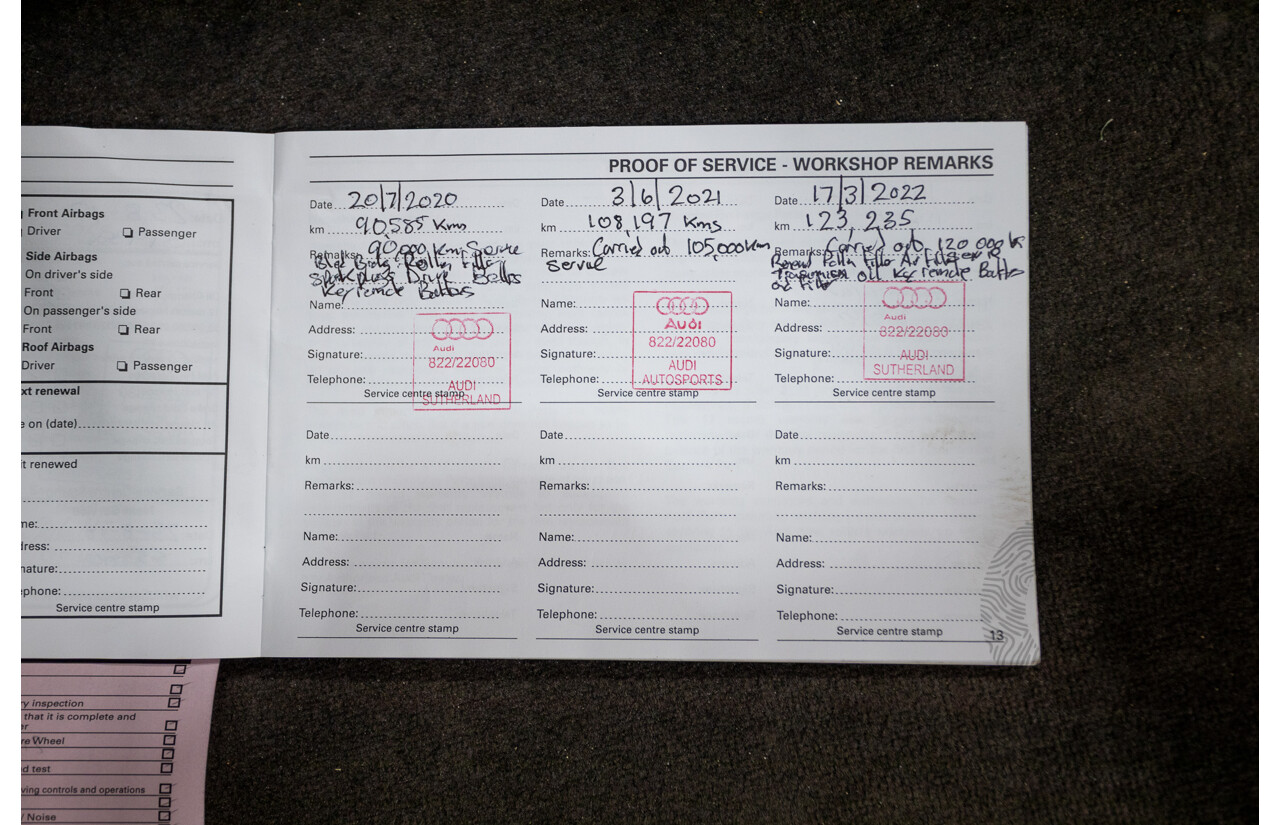 Front Airbags
Driver Passenger
Side Airbags
On driver's side
Front Rear
On passenger's side
Front Rear
Roof Airbags
Driver Passenger
renewal
on (date)
renewed
Service centre stamp
PROOF OF SERVICE - WORKSHOP REMARKS
Date 20/7/2020
km 90,585 Kms
Remarks: 90,000 Km Service
Spark plugs Drive Belts
Key remote
Name:
Address:
Signature:
Telephone:
Audi
822/22080
AUDI
SUTHERLAND
Service centre stamp
Date 3/6/2021
km 108,197 Kms
Remarks: Carried out 105,000 Km
Service
Name:
Address:
Signature:
Telephone:
Audi
822/22080
AUDI
AUTOSPORTS
Service centre stamp
Date 17/3/2022
km 123,235
Remarks: Carried out 120 000
Pollen Filter Air Filter
Transmission Oil Key remote
Oil Filter
Name:
Address:
Signature:
Telephone:
Audi
822/22080
AUDI
SUTHERLAND
Service centre stamp
Date
km
Remarks:
Name:
Address:
Signature:
Telephone:
Service centre stamp
Date
km
Remarks:
Name:
Address:
Signature:
Telephone:
Service centre stamp
Date
km
Remarks:
Name:
Address:
Signature:
Telephone:
Service centre stamp
13
inspection
that it is complete and
Wheel
test
controls and operations
Noise